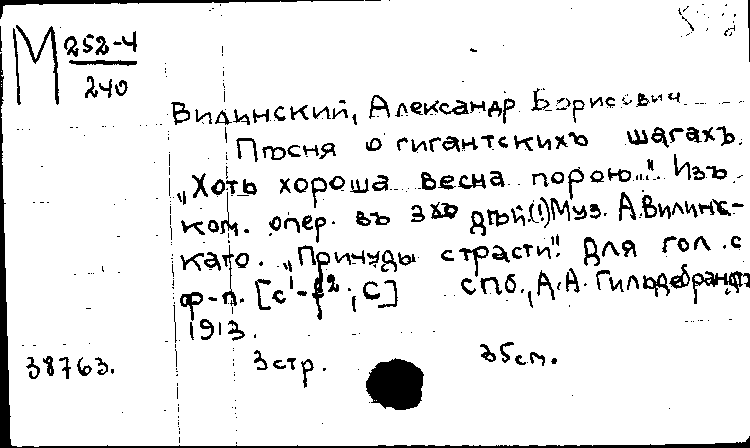 М 252-4
240
Вилинский, Александр Борисович
Пѣсня о гигантскихъ шагахъ
„Хоть хороша весна порою..." Изъ
ком. опер. въ 3хъ дѣй.(!) Муз. А. Вилинс-
каго. „Причуды страсти". Для гол. с
ф-п. [c¹-f²; C] СПб., А.А. Гильдебрандт
1913.
38763. 3 стр. 35 см.